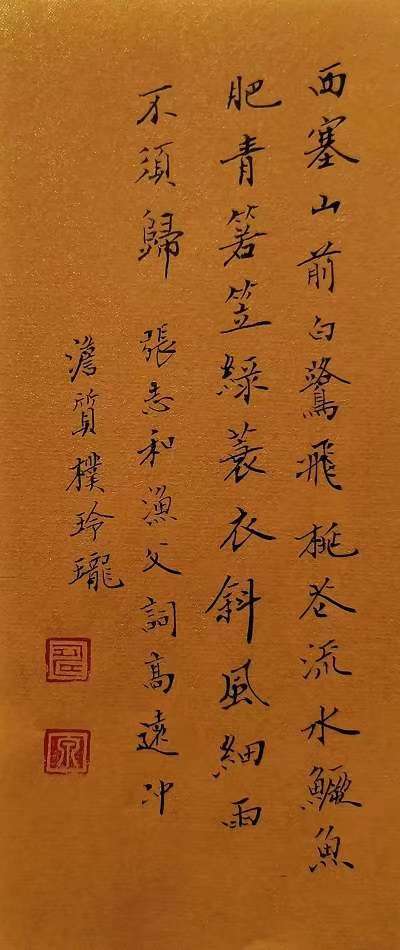 西塞山前白鷺飛桃花流水鱖魚
肥青箬笠綠蓑衣斜風細雨
不須歸 張志和漁父詞高遠冲
澹質樸玲瓏